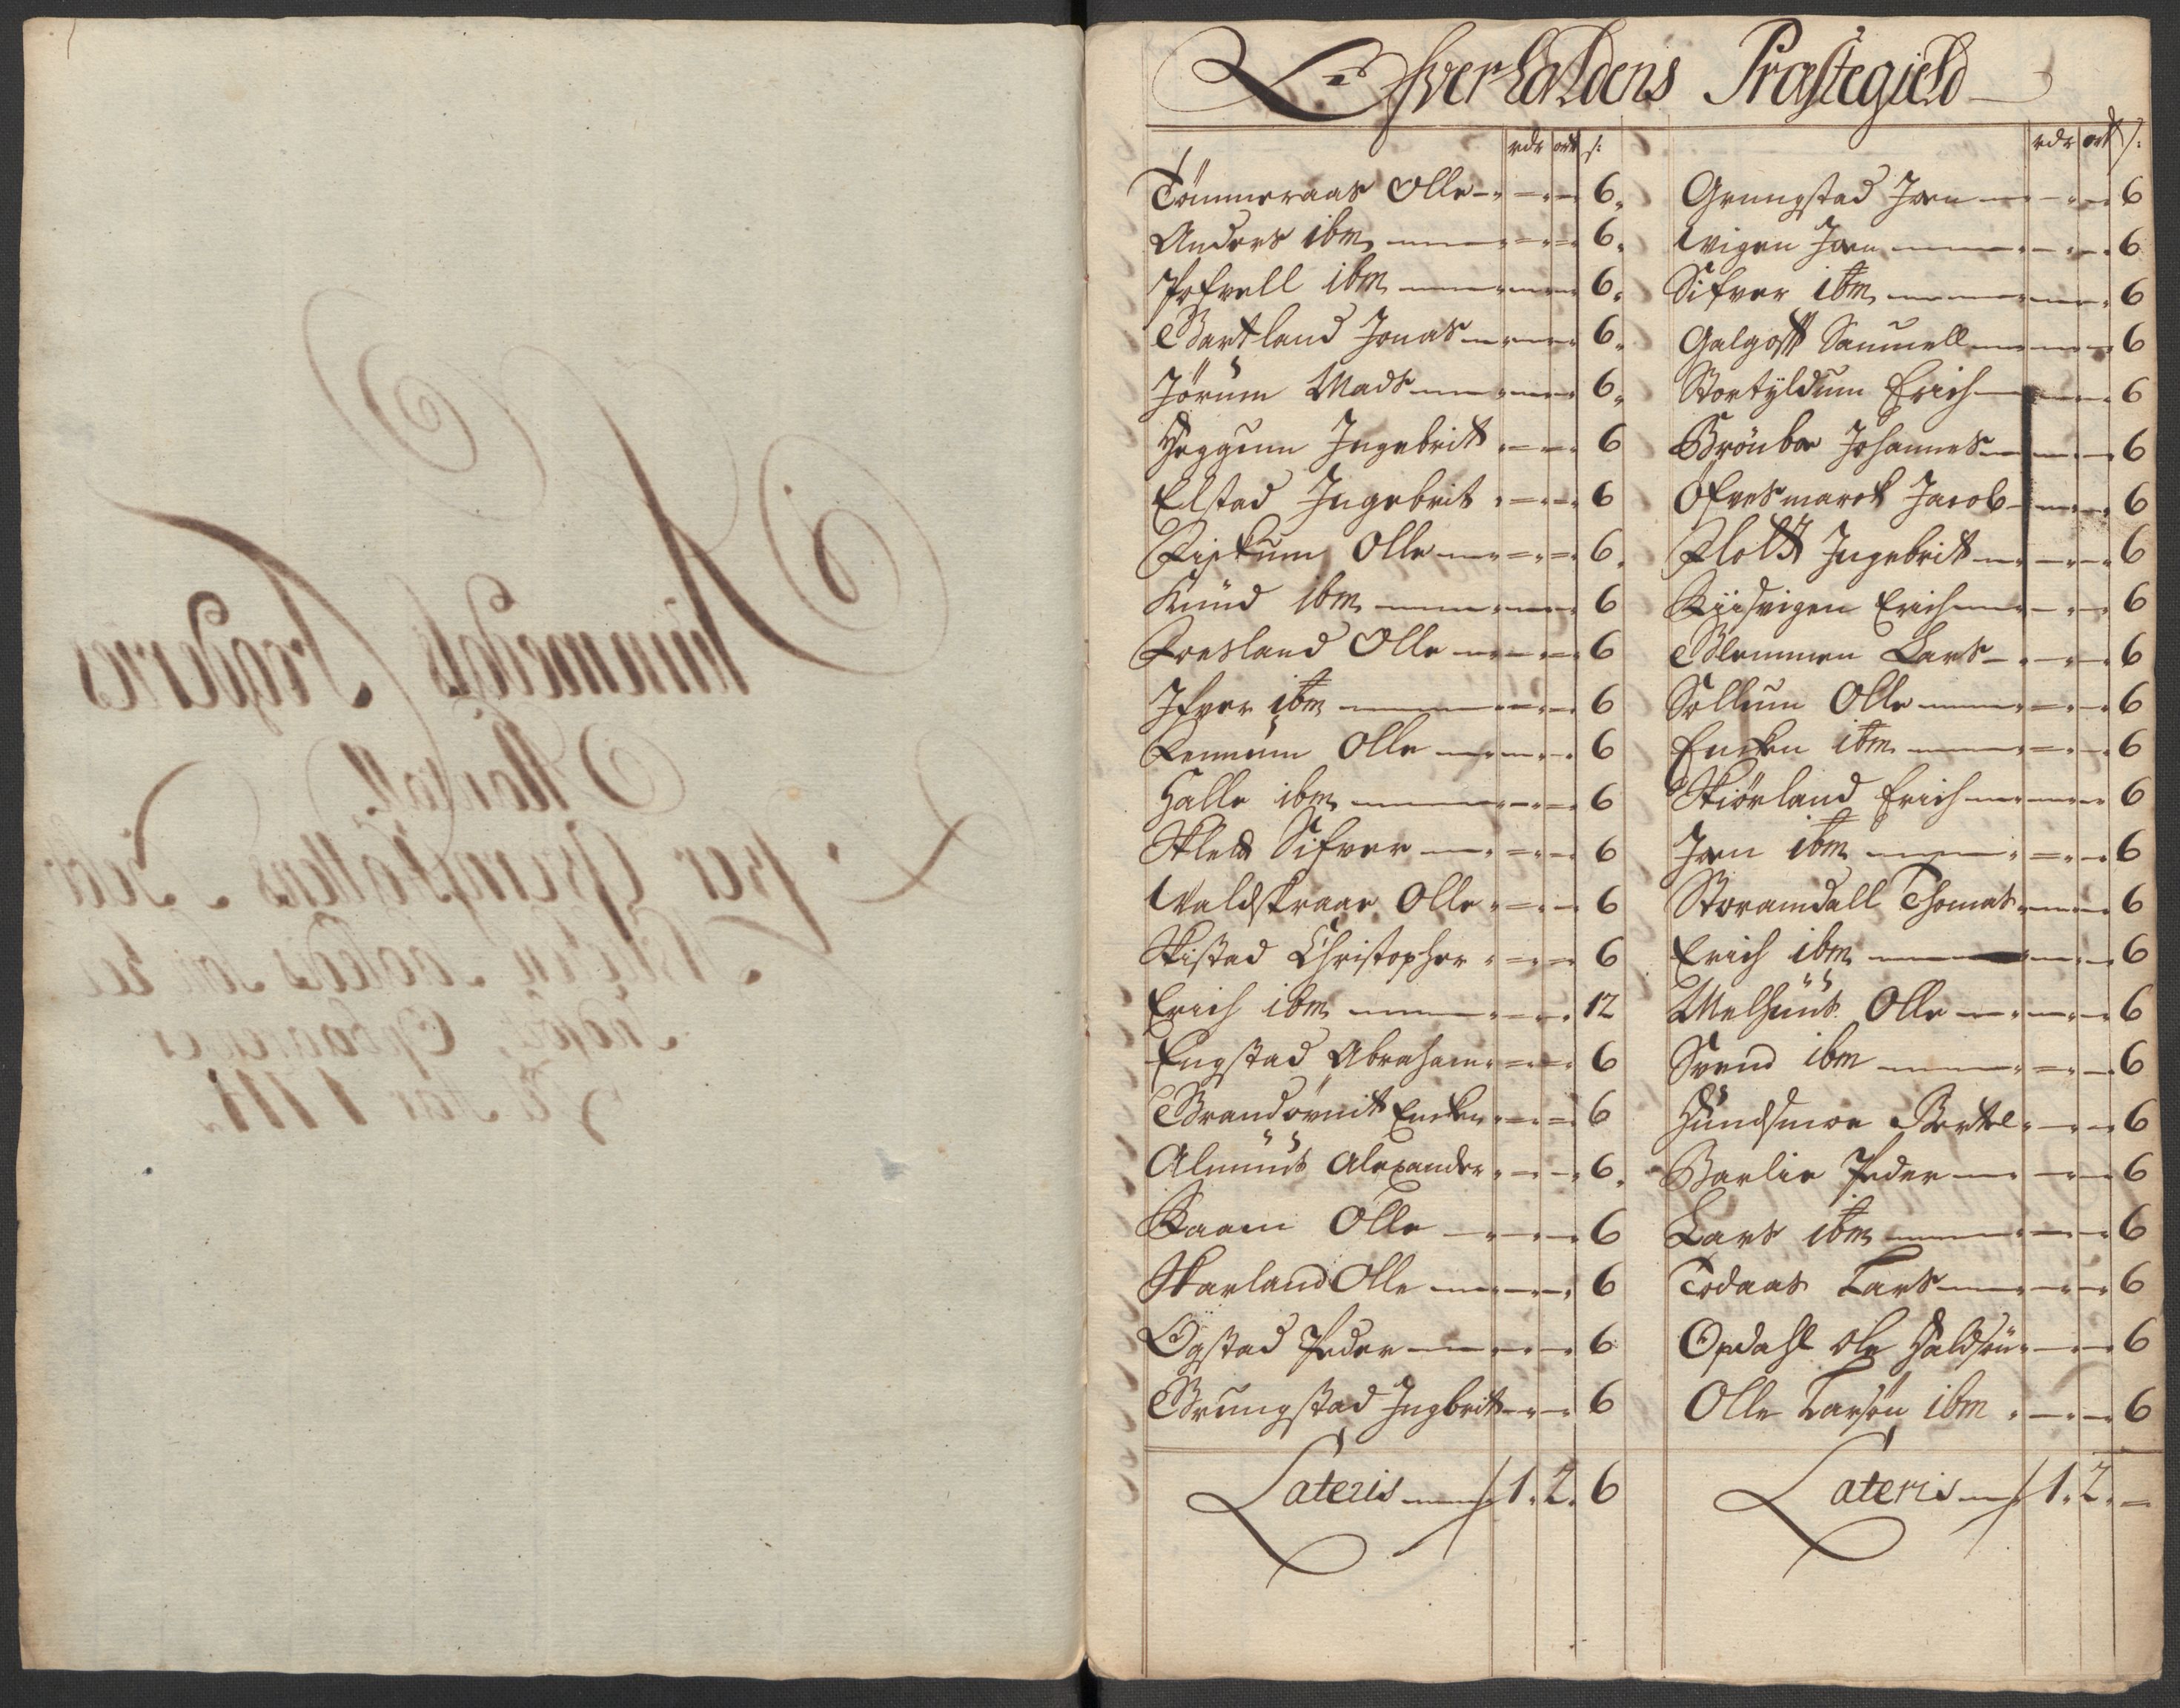 Ofverhaldens Præstegield
rdr ort s:
Tömmeraas Olle 6
Anders ibm 6
Pofvell ibm 6
Bartland Jonas 6
Jörum Mads 6
Heggum Ingebrit 6
Elstad Ingebrit 6
Fiskum Olle 6
Knud ibm 6
Fosland Olle 6
Ifver ibm 6
Rennum Olle 6
Halle ibm 6
Klett Sifver 6
Valdskraae Olle 6
Skistad Christopher 6
Erich ibm 12
Engstad Abraham 6
Brandövnit Encken 6
Almuus Alexander 6
Kaam Olle 6
Skarland Olle 6
Ogstad Peder 6
Grungstad Ingbrit 6
Lateris 1. 2. 6
rdr ort s:
Grungstad Joen 6
Wigen Joen 6
Sifver ibm 6
Galgoft Samuell 6
Stortyldum Erich 6
Grönboe Johannes 6
Öfvesmarck Jacob 6
Flott Ingebrit 6
Kiisvigen Erich 6
Glemmen Lars 6
Sollum Olle 6
Encken ibm 6
Skiörland Erich 6
Joen ibm 6
Storamdall Thomas 6
Erich ibm 6
Melhuus Olle 6
Svend ibm 6
Hundsmoe Bertel 6
Barlie Peder 6
Lars ibm 6
Todaas Lars 6
Opdahl Ole Haldsön 6
Olle Larsön ibm 6
Lateris 1. 2.